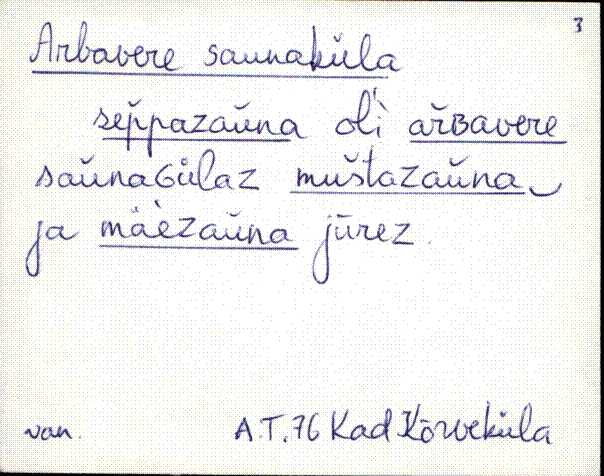 3
Arbavere saunaküla
sep̆pazaŭna oĺi ařʙavere
saŭnaGülaz muštazaŭna
ja mäèzaŭna jūrez.
van. A.T.76 Kad Kõrveküla